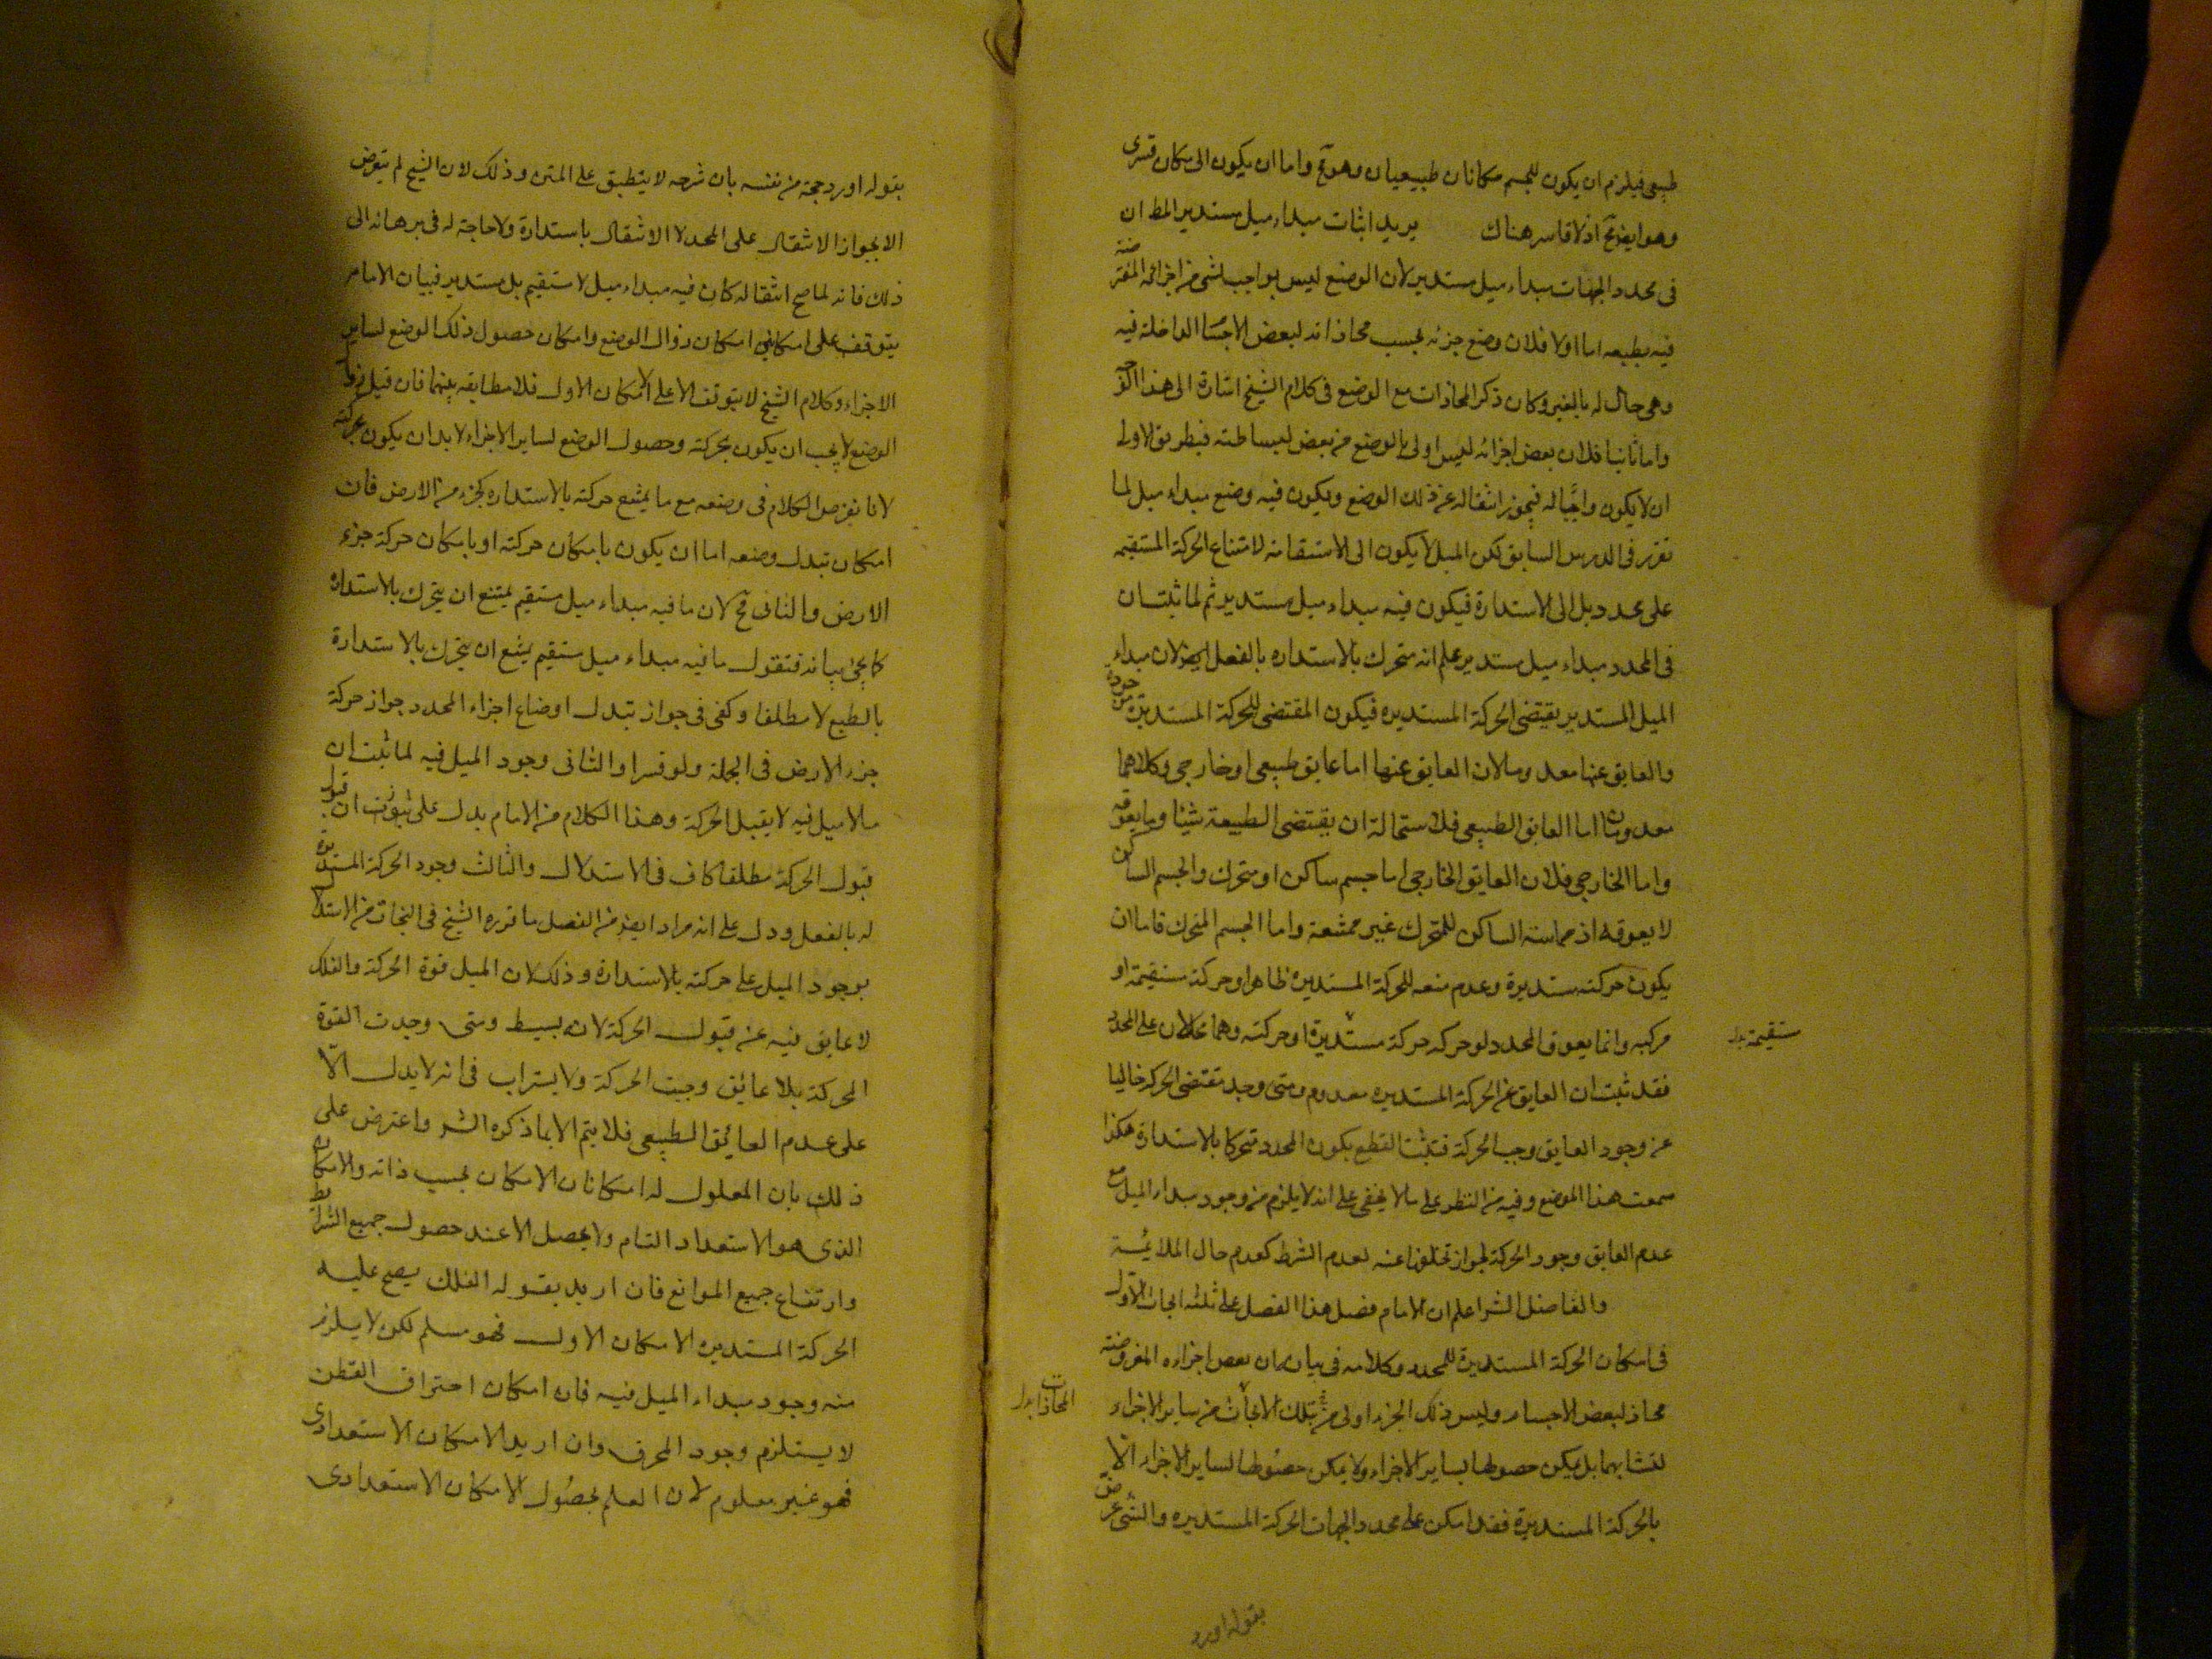 طبيعى فيلزم ان يكون للجسم مكانان طبيعيان وهو مح واما ان يكون الى مكان قسرى
وهو ايضا مح اذ لا قاسر هناك يريد اثبات مبداء ميل مستدير المط ان
فى محدد الجهات مبداء ميل مستدير لان الوضع ليس بواجب لشى من اجزائه المفترضة
فيه بطبيعه اما اولا فلان وضع جزئه بحسب محاذاته لبعض الاجسام الداخلة فيه
وهى حال له بالغير وكان ذكر المحاذات مع الوضع فى كلام الشيخ اشارة الى هذا
واما ثانيا فلان بعض اجزائه ليس اولى بالوضع من بعض لبساطته فبطريق الاولى
ان لا يكون واجبا له فيجوز انتقاله عن ذلك الوضع ويكون فيه وضع مبداء ميل لما
تقرر فى الدرس السابق لكن الميل لا يكون الى الاستقامة لامتناع الحركة المستقيمه
على محدد بل الى الاستدارة فيكون فيه مبداء ميل مستدير ثم لما ثبت ان
فى المحدد مبداء ميل مستدير علم انه متحرك بالاستداره بالفعل ايضا لان مبداء
الميل المستدير يقتضى الحركة المستديره فيكون المقتضى للحركة المستديرة موجودا
والعايق عنها معدوما لان العايق عنها اما عايق طبيعى او خارجى وكلاهما
معدومان اما العايق الطبيعى فلاستحالة ان يقتضى الطبيعة شيئا وما يعوقه
واما الخارجى فلان العايق الخارجى اما جسم ساكن او متحرك والجسم الساكن
لا يعوقه اذ مماسته الساكن للمتحرك غير ممتنعة واما الجسم المتحرك فاما ان
يكون حركته مستديرة وعدم منعه للحركة المستديره ظاهر او حركة مستقيمة او
مركبه وانما يعوق المحدد لو حركه حركة مستديرة او حركته وهما محالان على المحدد
مستقيمة بدل
فقد ثبت ان العايق عن الحركة المستديره معدوم ومتى وجد مقتضى الحركه خاليا
عن وجود العايق وجب الحركة فثبت القطع بكون المحدد متحركا بالاستدارة هكذا
سمعت هذا الموضع وفيه من النظر على ما لا يخفى على انه لا يلزم من وجود مبداء الميل مع
عدم العايق وجود الحركة لجواز تخلفها عنه لعدم الشرط كعدم حال الملائمة
والفاضل الشر اعلم ان الامام فصل هذا الفصل على ثلثه ابحاث الاول
فى امكان الحركة المستديرة للمحدد وكلامه فى بيان ان بعض اجزاءه المفروضة
محاذ لبعض الاجسام وليس ذلك الجزء اولى من بتلك الابحاث من ساير الاجزاء
المحاذات بدل
لتشابهها بل يمكن حصولها لساير الاجزاء ولا يمكن حصولها لساير الاجزاء الا
بالحركة المستديرة فقد امكن على محدد الجهات الحركة المستديره والشى عرض
بقوله اورد
بقوله اورد حجة من نفسه بان شرحه لا ينطبق على المتن وذلك لان الشيخ لم يتعرض
الا لجواز الانتقال على المحدد لا الانتقال باستدارة ولا حاجة له فى برهانه الى
ذلك فانه لما صح انتقاله كان فيه مبداء ميل لا مستقيم بل مستدير فبيان الامام
يتوقف على امكانى امكان زوال الوضع وامكان حصول ذلك الوضع لساير
الاجزاء وكلام الشيخ لا يتوقف الا على الامكان الاول فلا مطابقه بينهما فان قيل زوال
الوضع لا يجب ان يكون بحركته وحصول الوضع لساير الاجزاء لا بد ان يكون بحركته
لانا نفرض الكلام فى وضعه مع ما يمتنع حركته بالاستداره كجزء من الارض فان
امكان تبدل وضعه اما ان يكون بامكان حركته او بامكان حركة جزء
الارض والثانى مح لان ما فيه مبداء ميل مستقيم يمتنع ان يتحرك بالاستداره
كما يجئ بيانه فتقول ما فيه مبداء ميل مستقيم يمتنع ان يتحرك بالاستدارة
بالطبع لا مطلقا وكفى فى جواز تبدل اوضاع اجزاء المحدد جواز حركة
جزء الارض فى الجملة ولو قسرا والثانى وجود الميل فيه لما ثبت ان
ما لا ميل فيه لا يقبل الحركة وهذا الكلام من الامام يدل على ان قبول
قبول الحركة مطلقا كاف فى الاستدلال والثالث وجود الحركة المستديرة
له بالفعل ودل على انه مراد ايضا من الفصل ما قرره الشيخ فى النجات من الاستدلال
بوجود الميل على حركته بالاستدارة وذلك لان الميل قوة الحركة والفلك
لا عايق فيه عن قبول الحركة لانه بسيط ومتى وجدت القوة
المحركة بلا عائق وجبت الحركة ولا يستراب فى انه لا يدل الا
على عدم العائق الطبيعى فلا يتم الا بما ذكره الشر واعترض على
ذلك بان المعلول له امكانان الامكان بحسب ذاته والامكان
الذى هو الاستعداد التام ولا يحصل الا عند حصول جميع الشرائط
وارتفاع جميع الموانع فان اريد بقوله الفلك يصح عليه
الحركة المستديره الامكان الاول فهو مسلم لكن لا يلزم
منه وجود مبداء الميل فيه فان امكان احتراق القطن
لا يستلزم وجود المحرق وان اريد الامكان الاستعدادى
فهو غير معلوم لان العلم بحصول الامكان الاستعدادى